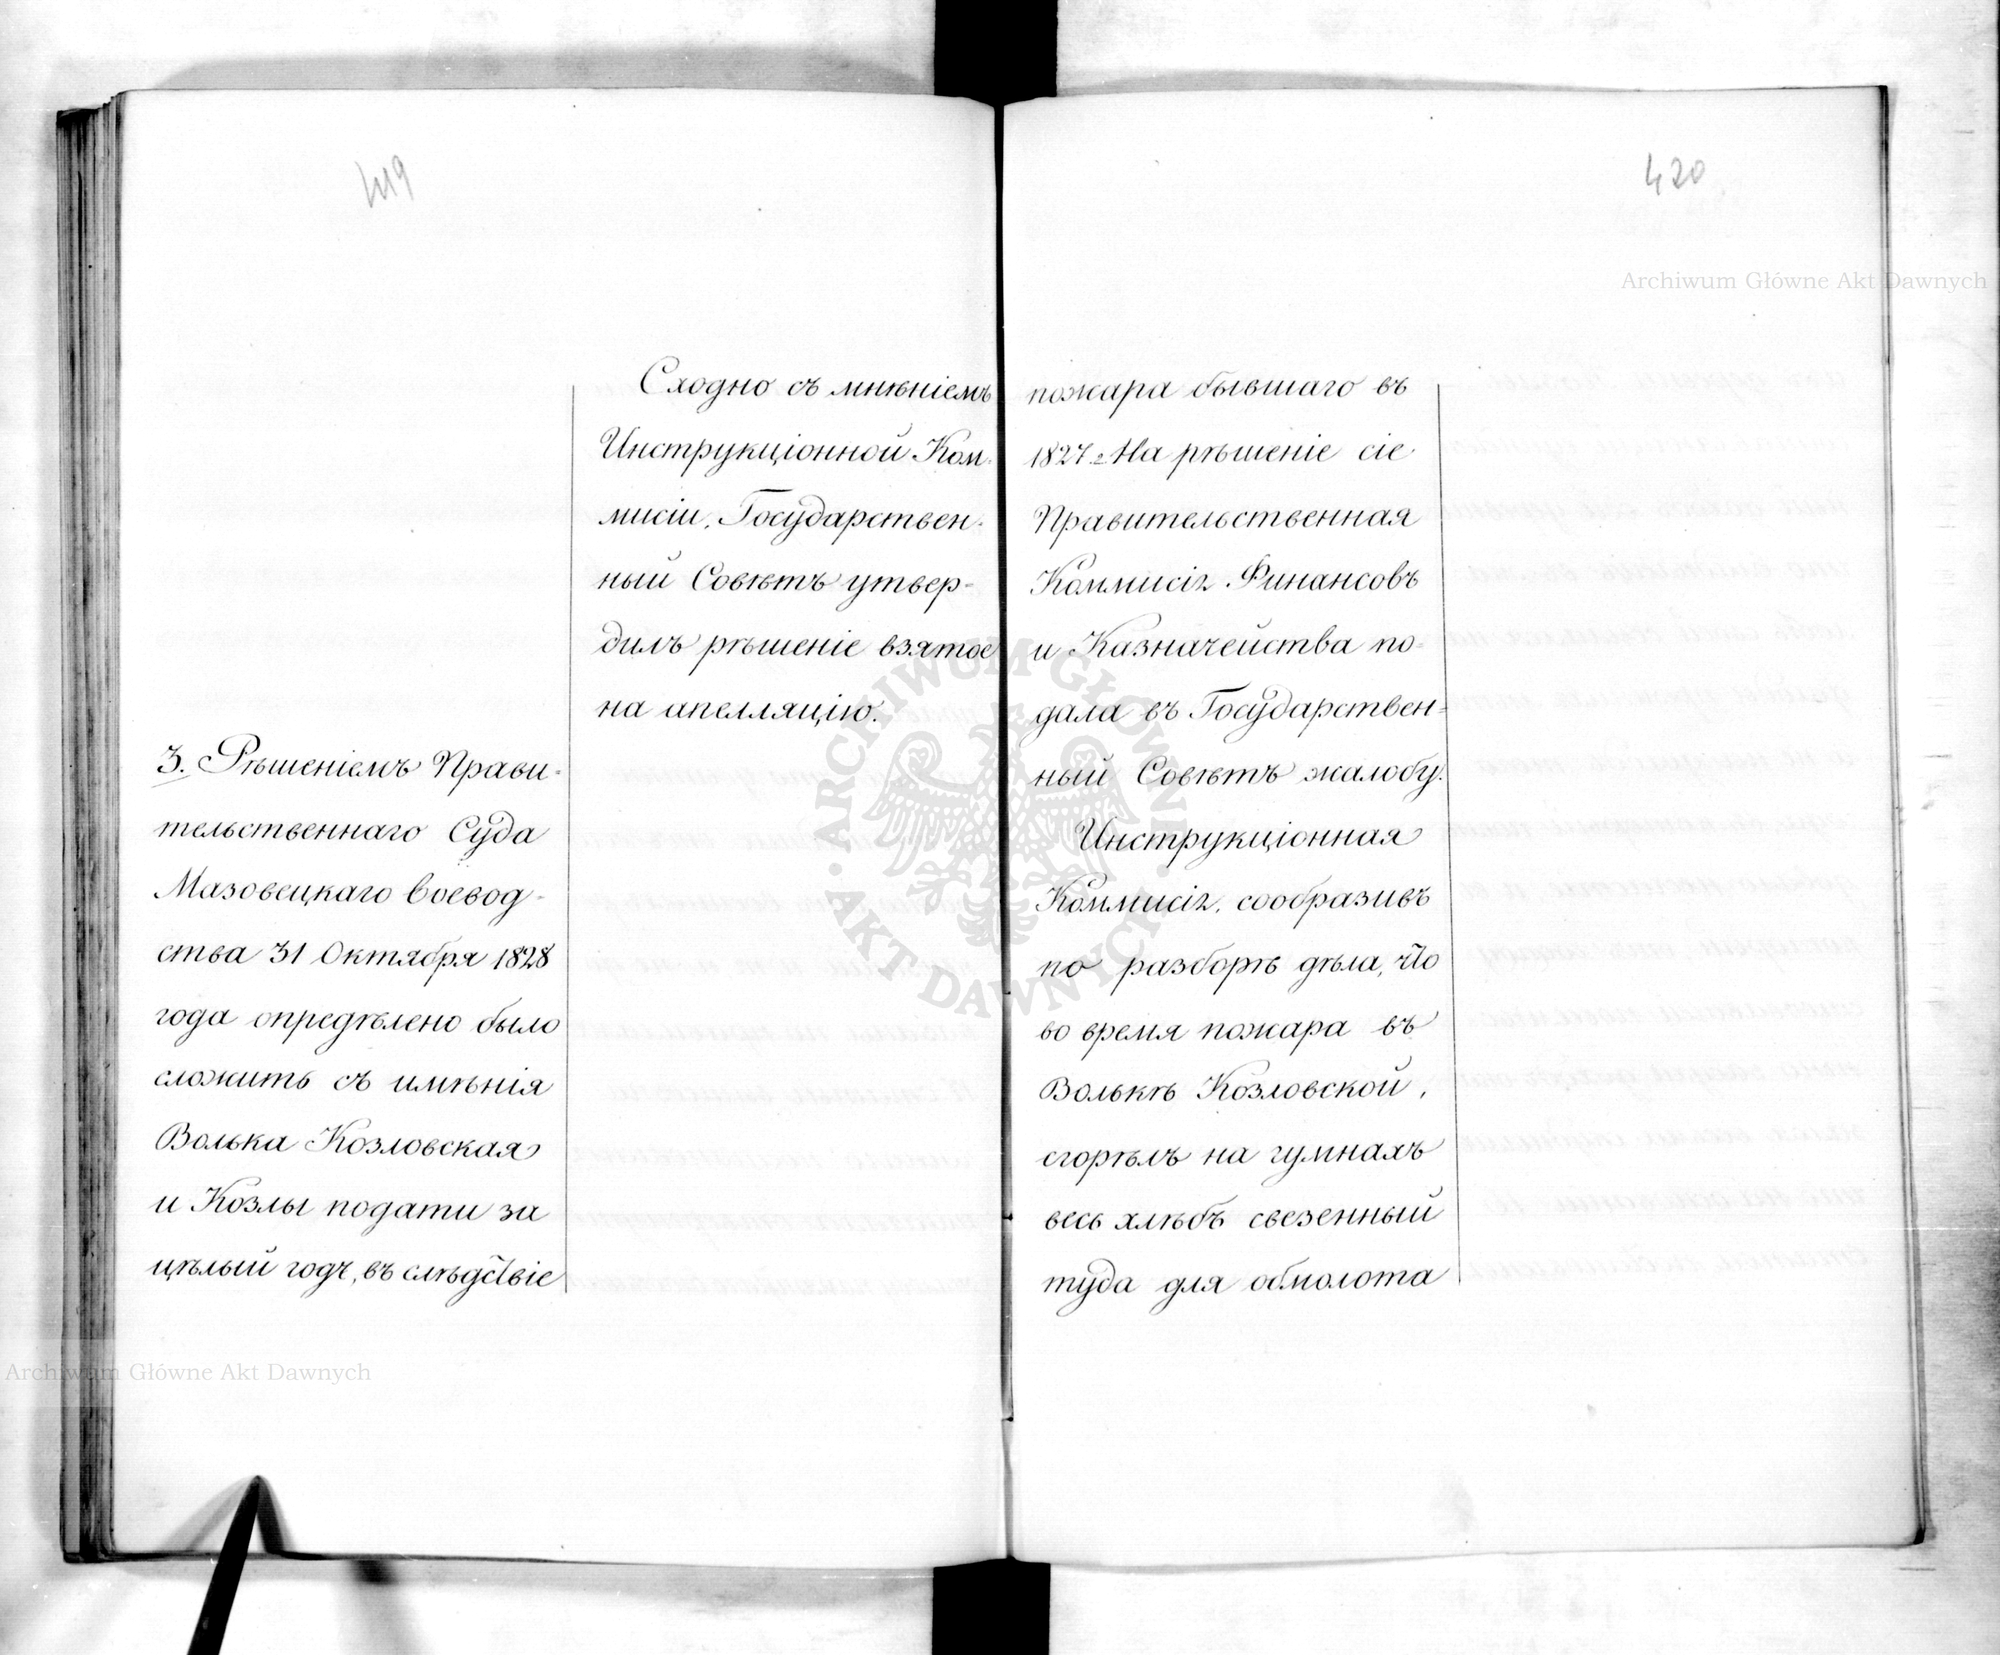 419
Сходно съ мнѣніемъ
Инструкціонной Ком-
мисіи, Государствен-
ный Совѣтъ утвер-
дилъ рѣшеніе взятое
на апелляцію.
3. Рѣшеніемъ Прави-
тельственнаго Суда
Мазовецкаго Воевод-
ства 31 Октября 1828
года опредѣлено было
сложить съ имѣнія
Волька Козловская
и Козлы подати за
цѣлый годъ, въ слѣдствіе
420
пожара бывшаго въ
1827 г. На рѣшеніе сіе
Правительственная
Коммисія Финансовъ
и Казначейства по-
дала въ Государствен-
ный Совѣтъ жалобу.
Инструкціонная
Коммисія, сообразивъ
по разборѣ дѣла, что
во время пожара въ
Волькѣ Козловской,
сгорѣлъ на гумнахъ
весь хлѣбъ свезенный
туда для обмолота
Archiwum Główne Akt Dawnych
Archiwum Główne Akt Dawnych
ARCHIWUM GŁÓWNE AKT DAWNYCH